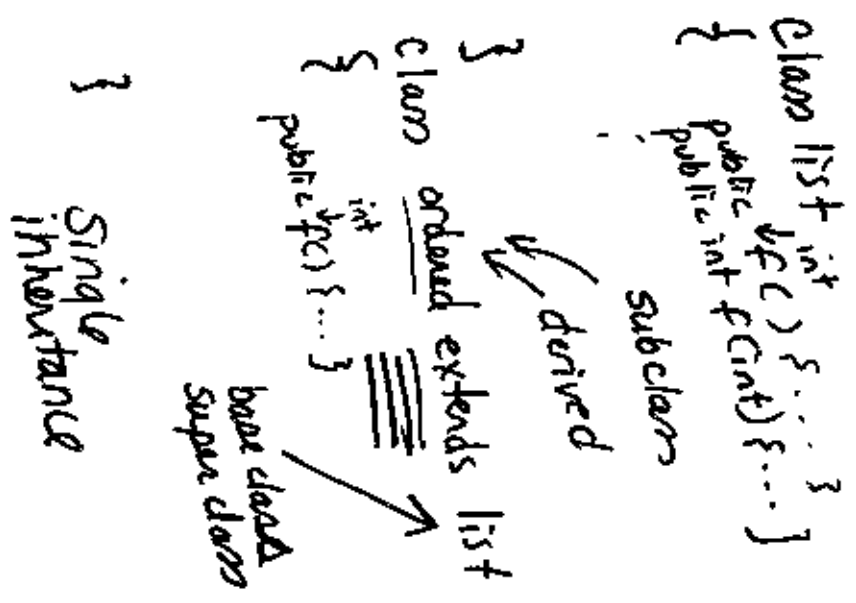 class list
{
int
public f() {....}
public int f(int) {...}
subclass
derived
}
class ordered extends list
{
int
public f() {...}
base class
super class
}
Single
inheritance